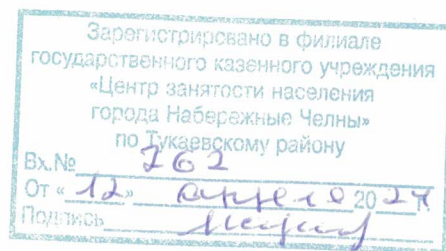 Зарегистрировано в филиале
государственного казенного учреждения
«Центр занятости населения
города Набережные Челны»
по Тукаевскому району
Вх.№ 262
От « 12 » апреля 20 24 г.
Подпись